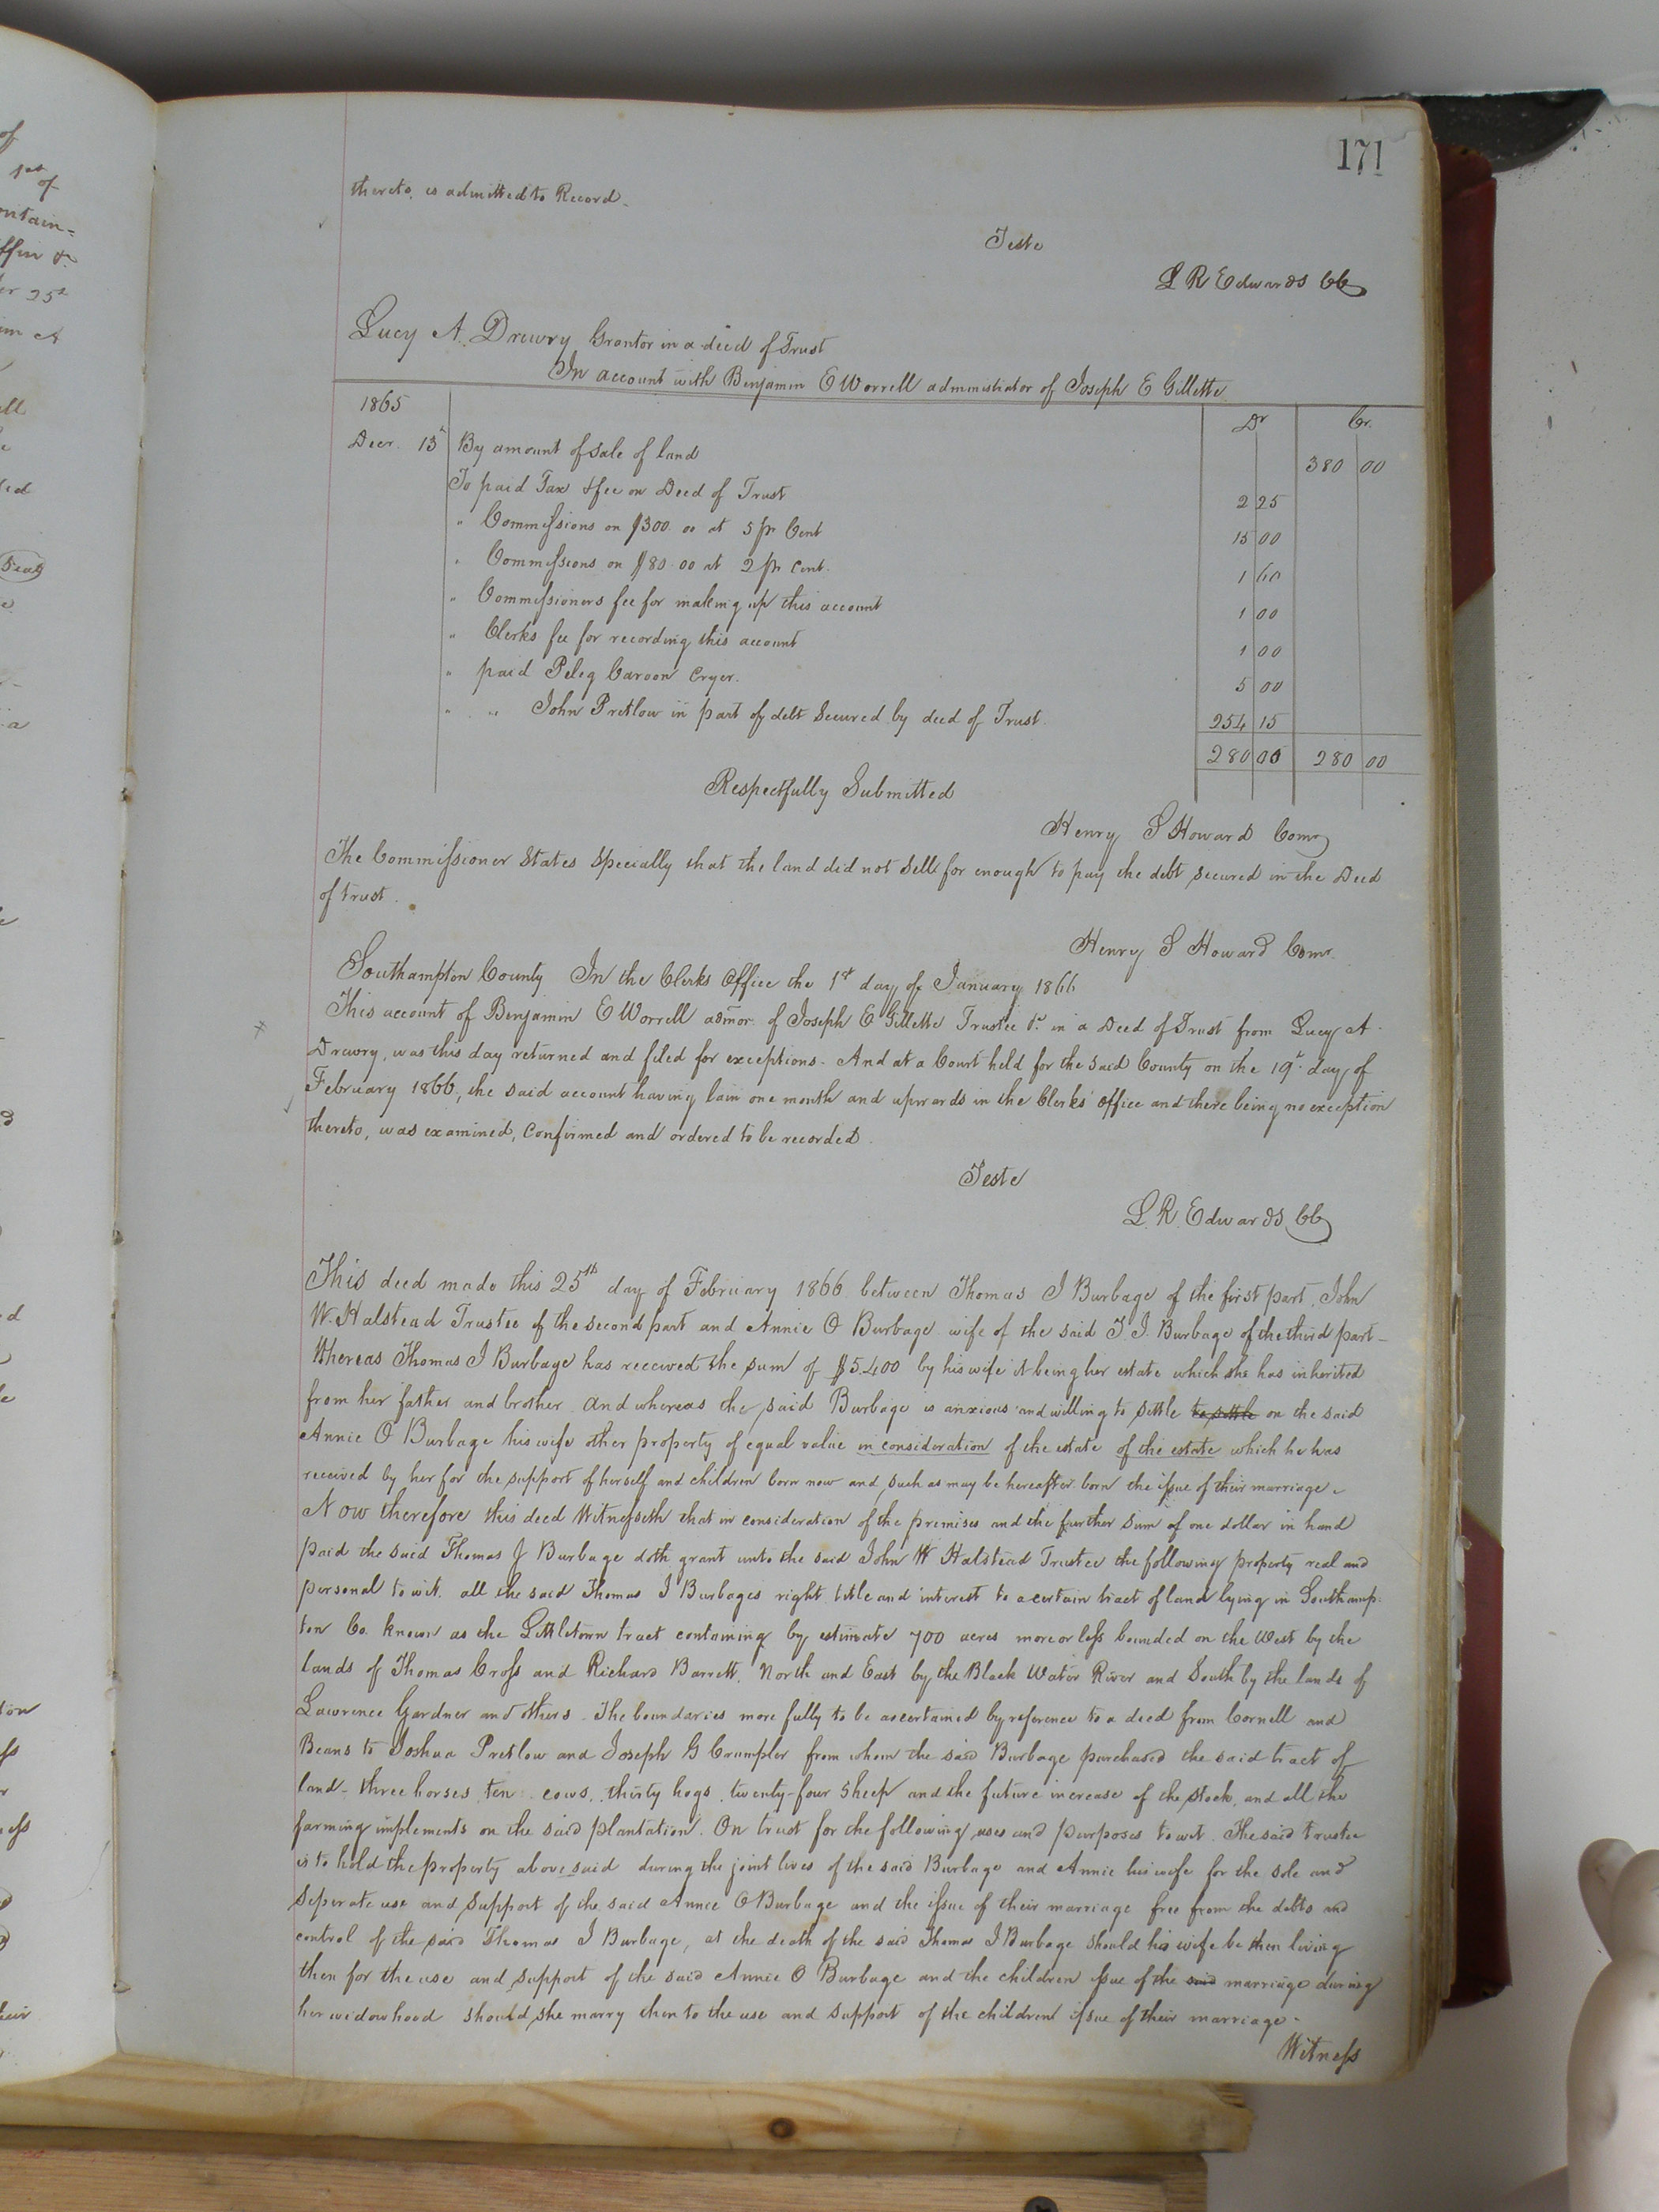 171
thereto, is admitted to Record.
Teste
L R Edwards CC
Lucy A. Drewry Grantor in a deed of Trust
In account with Benjamin E Worrell administrator of Joseph E Gillette
1865 Dr Cr.
Decr. 15 By amount of sale of land 380 00
To paid Tax & fee on Deed of Trust 2 25
" Commissions on $300.00 at 5 pr Cent 15 00
" Commissions on $80.00 at 2 pr Cent. 1 60
" Commissioners fee for making up this account 1 00
" Clerks fee for recording this account 1 00
" paid Peleg Carson Cryer. 5 00
" " John Pretlow in part of debt Secured by deed of Trust. 254 15
280 00 280 00
Respectfully Submitted
Henry S Howard Comr
The Commissioner States Specially that the land did not Sell for enough to pay the debt secured in the Deed
of trust.
Henry S Howard Comr.
Southampton County In the Clerks Office the 1st day of January 1866
This account of Benjamin E Worrell admor. of Joseph E Gillette Trustee &c in a Deed of Trust from Lucy A.
Drewry, was this day returned and filed for exceptions. And at a Court held for the said County on the 19th day of
February 1866, the said account having lain one month and upwards in the Clerks Office and there being no exception
thereto, was examined, Confirmed and ordered to be recorded.
Teste
L. R. Edwards CC
This deed made this 25th day of February 1866 between Thomas J Burbage of the first part, John
W. Halstead Trustee of the second part and Annie O Burbage wife of the said T. J. Burbage of the third part -
Whereas Thomas J Burbage has received the sum of $5.400 by his wife it being her estate which she has inherited
from her father and brother. And whereas the said Burbage is anxious and willing to settle to settle on the said
Annie O Burbage his wife other property of equal value in consideration of the estate of the estate which he has
received by her for the support of herself and children born now and such as may be hereafter born the issue of their marriage.
Now therefore this deed Witnesseth that in consideration of the premises and the further Sum of one dollar in hand
paid the said Thomas J Burbage doth grant unto the said John W Halstead Trustee the following property real and
personal to wit. all the said Thomas J Burbages right title and interest to a certain tract of land lying in Southamp-
ton Co. known as the Littletown tract containing by estimate 700 acres more or less bounded on the West by the
lands of Thomas Cross and Richard Barrett. North and East by the Black Water River and South by the lands of
Lawrence Gardner and others. The boundaries more fully to be ascertained by reference to a deed from Cornell and
Beans to Joshua Pretlow and Joseph G Crumpler from whom the said Burbage purchased the said tract of
land - three horses, ten cows, thirty hogs, twenty-four Sheep and the future increase of the stock, and all the
farming implements on the said plantation. On trust for the following uses and purposes to wit. The said trustee
is to hold the property above said during the joint lives of the said Burbage and Annie his wife for the sole and
Seperate use and Support of the said Annie O Burbage and the issue of their marriage free from the debts and
control of the said Thomas J Burbage, at the death of the said Thomas J Burbage Should his wife be then living
then for the use and support of the said Annie O Burbage and the children issue of the said marriage during
her widowhood should she marry then to the use and support of the children issue of their marriage.
Witness